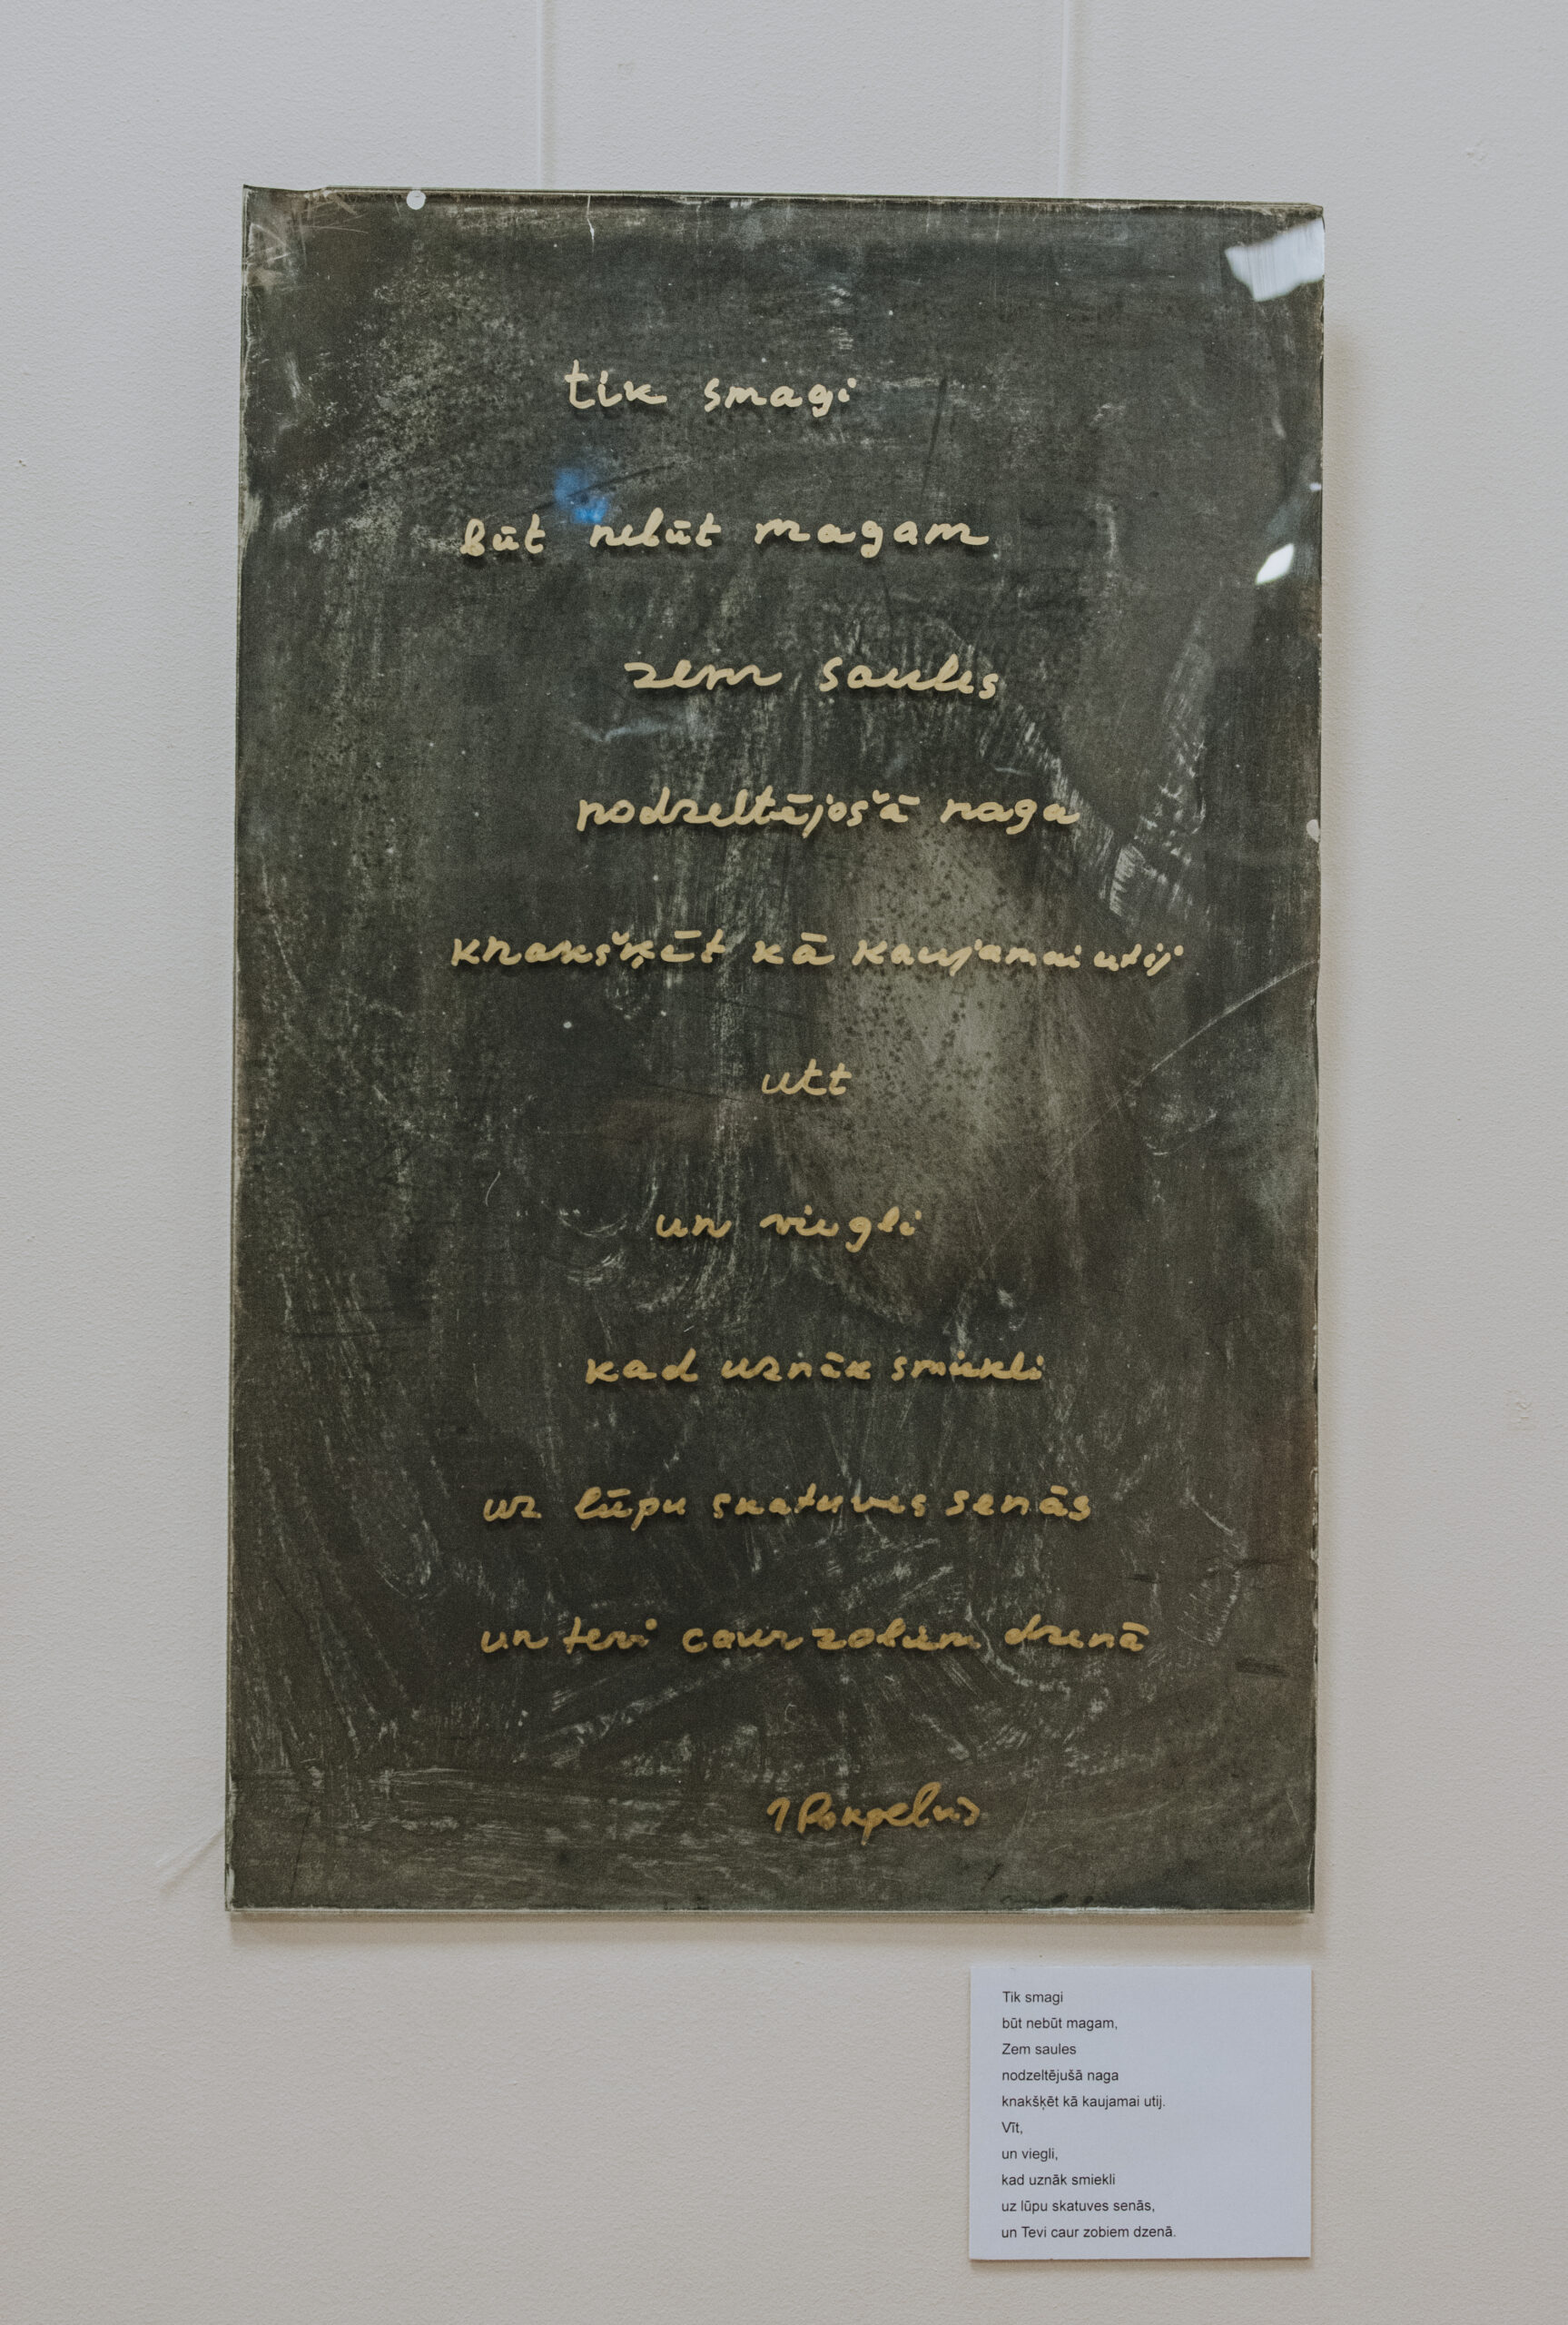 tik smagi
būt nebūt magam
zem saules
nodzeltējošā naga
knakšķēt kā kaujamai utij
utt
un viegli
kad uznāk smiekli
uz lūpu skatuves senās
un tevi caur zobiem dzenā
Tik smagi
būt nebūt magam,
Zem saules
nodzeltējušā naga
knakšķēt kā kaujamai utij.
Vīt,
un viegli,
kad uznāk smiekli
uz lūpu skatuves senās,
un Tevi caur zobiem dzenā.